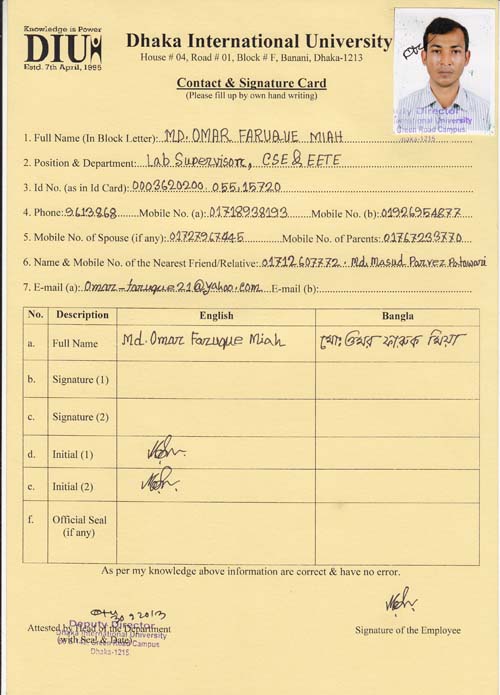 Knowledge is Power
DIU
Estd. 7th April, 1995
Dhaka International University
House # 04, Road # 01, Block # F, Banani, Dhaka-1213
Contact & Signature Card
(Please fill up by own hand writing)
Deputy Director
Dhaka International University
Green Road Campus
Dhaka-1215
1. Full Name (In Block Letter): MD. OMAR FARUQUE MIAH
2. Position & Department: Lab Supervisor, CSE & EETE
3. Id No. (as in Id Card): 0003620200.055.15720
4. Phone: 9613868 Mobile No. (a): 01718938193 Mobile No. (b): 01926954877
5. Mobile No. of Spouse (if any): 01727967445 Mobile No. of Parents: 01767233770
6. Name & Mobile No. of the Nearest Friend/Relative: 01712607772. Md. Masud Parvez Patowari
7. E-mail (a): Omar-faruque21@yahoo.com E-mail (b):
No. Description English Bangla
a. Full Name Md. Omar Faruque Miah মোঃ ওমর ফারুক মিয়া
b. Signature (1)
c. Signature (2)
d. Initial (1)
e. Initial (2)
f. Official Seal
(if any)
As per my knowledge above information are correct & have no error.
Attested by Head of the Department
(with Seal & Date)
Deputy Director
Dhaka International University
Green Road Campus
Dhaka-1215
Signature of the Employee